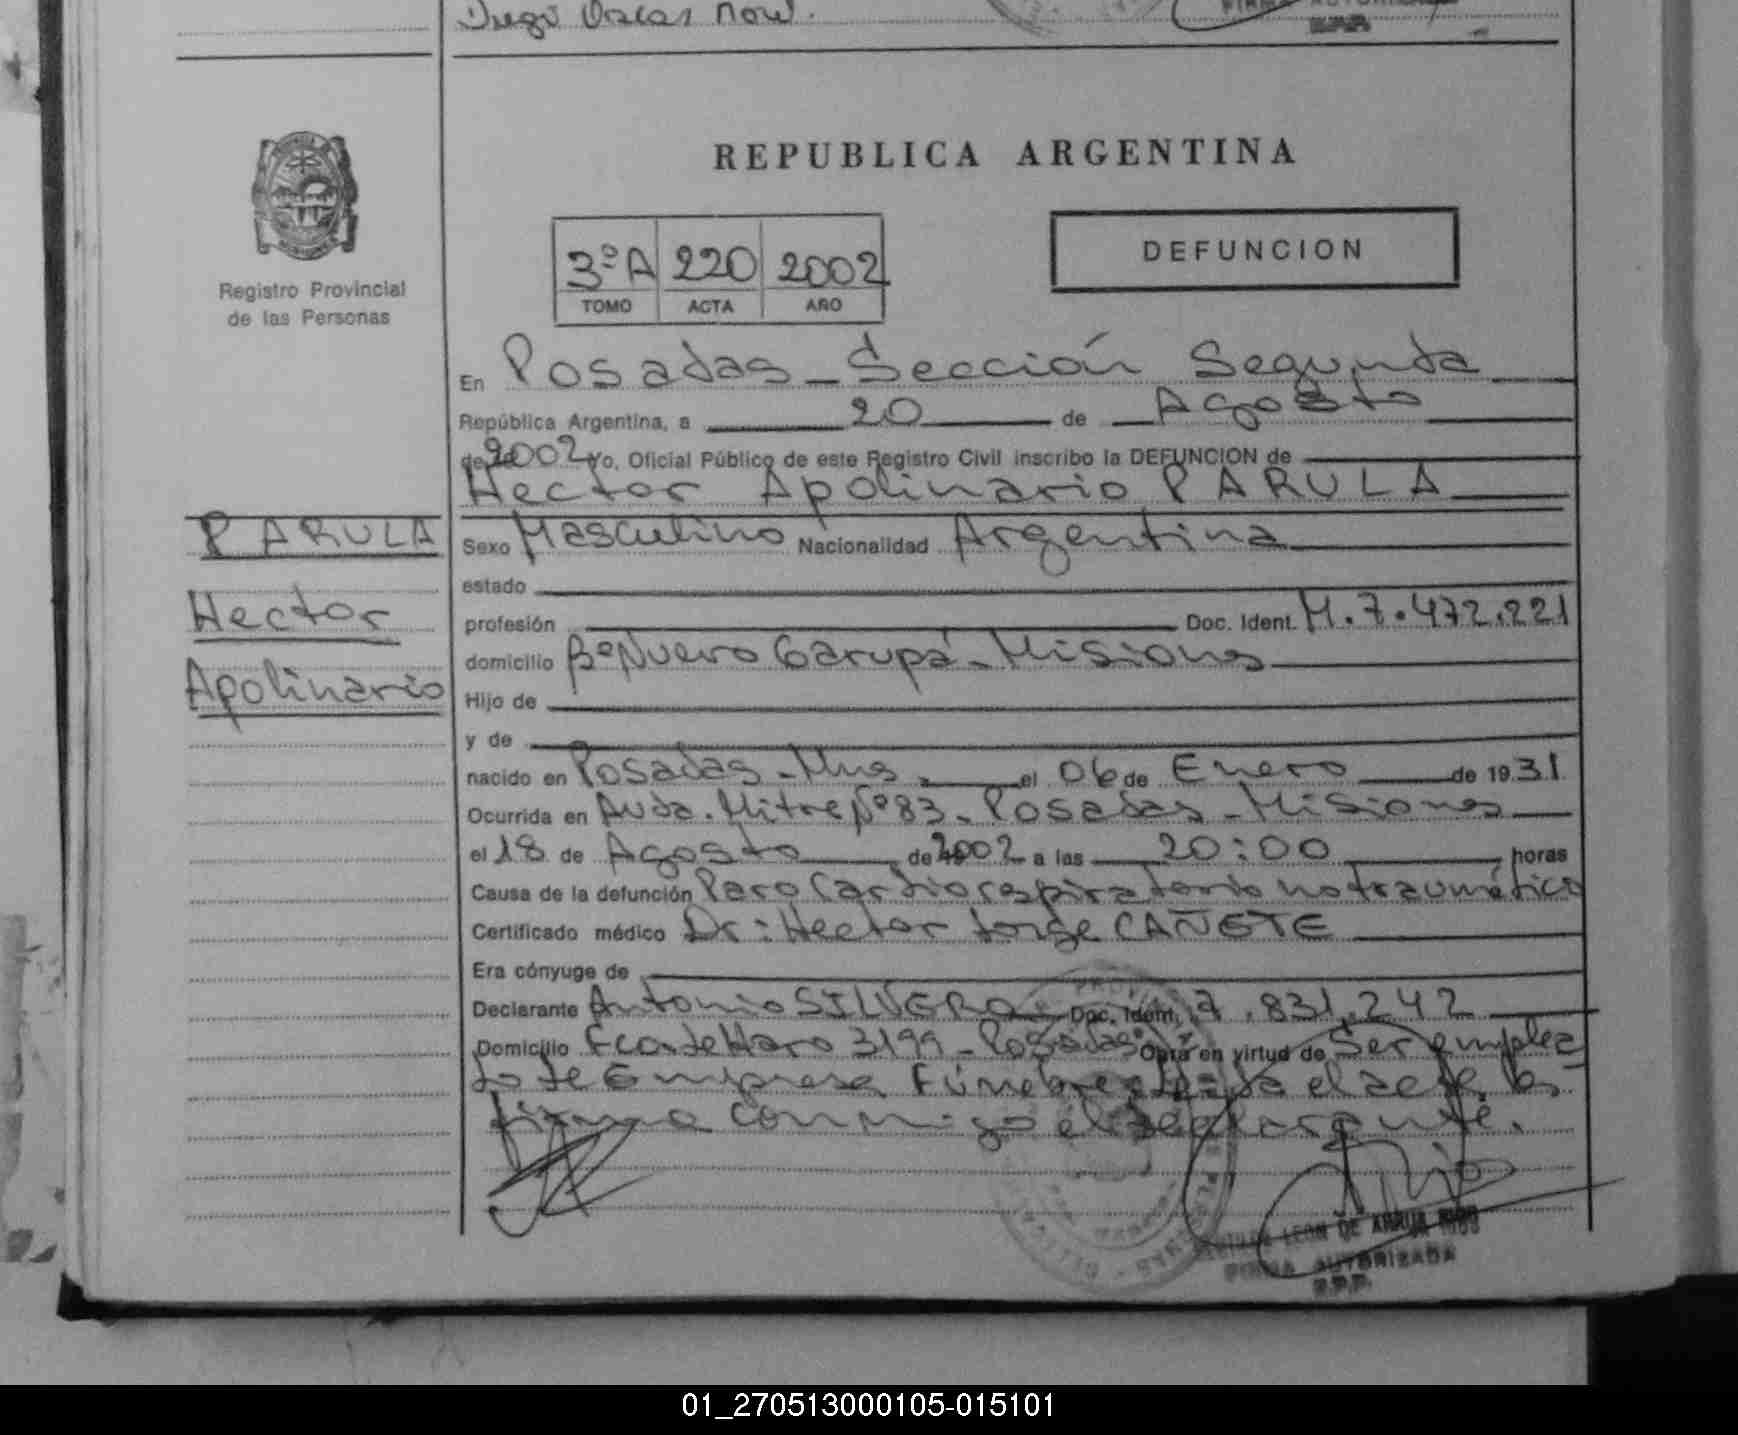 Diego Oscar
FIRMA AUTORIZADA
R.P.P.
REPUBLICA ARGENTINA
DEFUNCION
3ºA 220 2002
TOMO ACTA AÑO
Registro Provincial
de las Personas
En Posadas - Sección Segunda
República Argentina, a 20 de Agosto
de 2002 Yo, Oficial Público de este Registro Civil inscribo la DEFUNCION de
Hector Apolinario PARULA
PARULA
Hector
Apolinario
Sexo Masculino Nacionalidad Argentina
estado
profesión Doc. Ident. M. 7.472.221
domicilio Bº Nuevo Garupá - Misiones
Hijo de
y de
nacido en Posadas - Mnes. el 06 de Enero de 1931
Ocurrida en Avda. Mitre Nº 83 - Posadas - Misiones
el 18 de Agosto de 2002 a las 20:00 horas
Causa de la defunción Paro Cardiorespiratorio no traumático
Certificado médico Dr: Hector Jorge CAÑETE
Era cónyuge de
Declarante Antonio SILVERO Doc. Ident. 7.831.242
Domicilio Fco de Haro 3199 - Posadas Obra en virtud de Ser emplea
do de Empresa Fúnebre el acta la
firma conmigo el declarante.
LEON DE ARRUA
FIRMA AUTORIZADA
R.P.P.
01_270513000105-015101